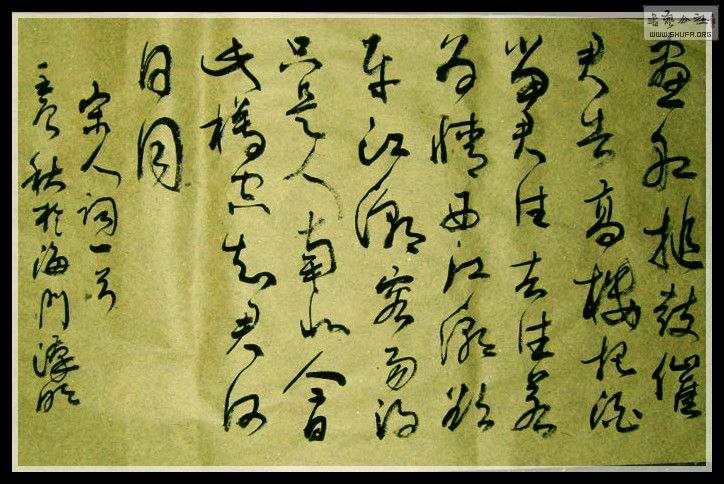 畫船捶鼓催
君去高樓把酒
留君住去住若
為情西江潮欲
平江潮容易得
只是人南北今日
此樽空知君何
日同
宋人詞一首
秋於海門
書藝公社
WWW.SHUFA.ORG